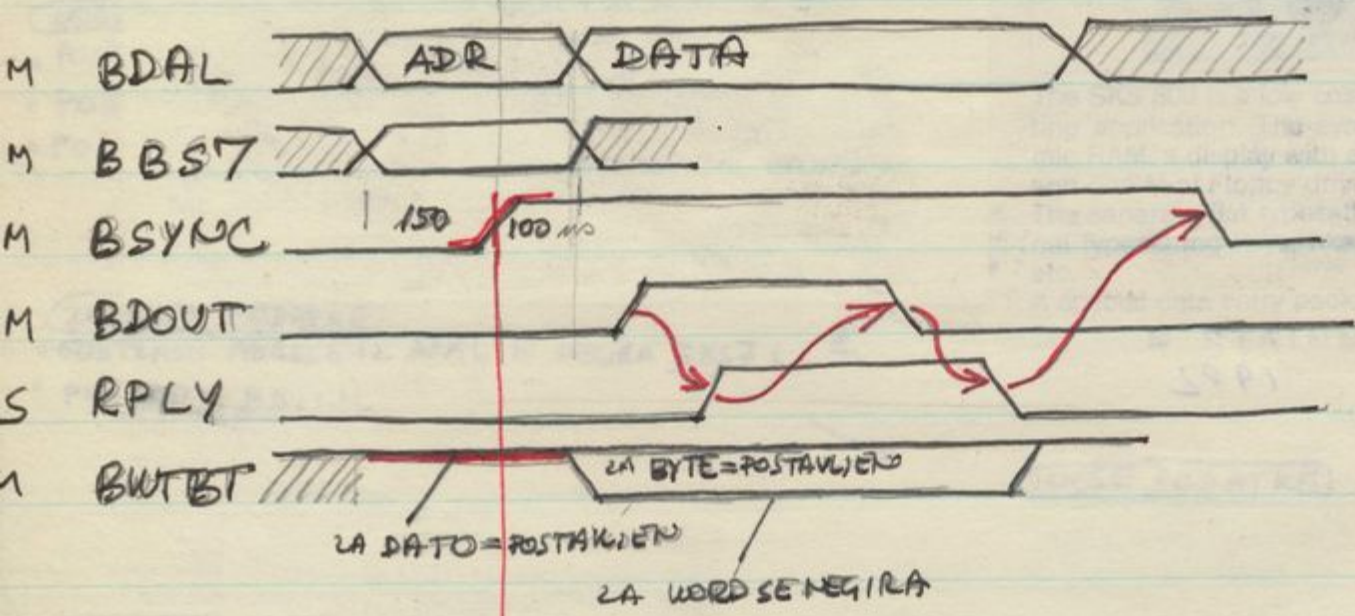 M BDAL ADR DATA
M BBS7
M BSYNC 150 100 ns
M BDOUT
S RPLY
M BWTBT ZA BYTE=POSTAVLJEN
ZA DATO=POSTAVLJEN
ZA WORD SE NEGIRA